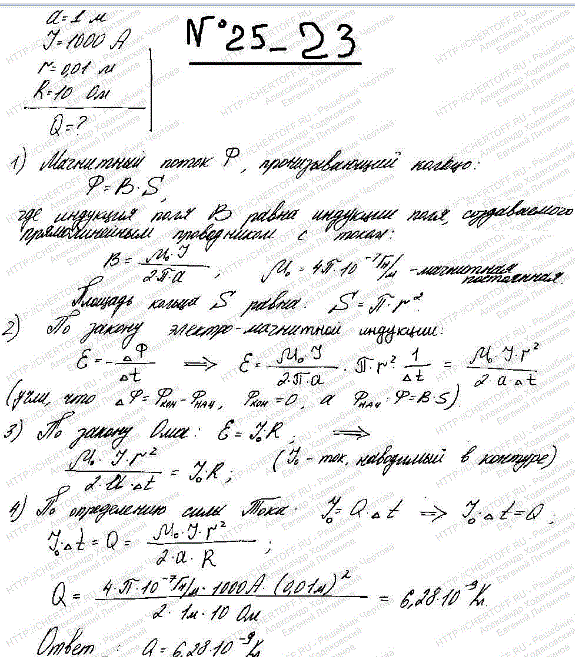 a=1 м
№ 25-23
J=1000 А
r=0,01 м
R=10 Ом
Q=?
1) Магнитный поток Ф, пронизывающий кольцо:
Ф=B·S,
где индукция поля B равна индукции поля, создаваемого
прямолинейным проводником с током:
B = μ₀·J / 2πa ; μ₀ = 4π·10⁻⁷ Гн/м - магнитная
постоянная.
Площадь кольца S равна: S=π·r².
2) По закону электро-магнитной индукции:
ℰ = -ΔФ/Δt ⟹ ℰ = μ₀·J / 2·π·a · π·r² 1/Δt = μ₀·J·r² / 2·a·Δt
(учли, что ΔФ=Фкон-Фнач, Фкон=0, а Фнач=Ф=B·S)
3) По закону Ома: ℰ=J₀R; ⟹
μ₀·J·r² / 2·a·Δt = J₀R; (J₀ - ток, наводимый в контуре)
4) По определению силы Тока: J₀=Q·Δt ⟹ J₀·Δt=Q;
J₀·Δt = Q = μ₀·J·r² / 2·a·R ;
Q = 4·π·10⁻⁷ Гн/м·1000А·(0,01м)² / 2·1м·10 Ом = 6,28·10⁻⁹ Кл
Ответ: Q=6,28·10⁻⁹ Кл
HTTP://CHERTOFF.RU - Решебник Чертова